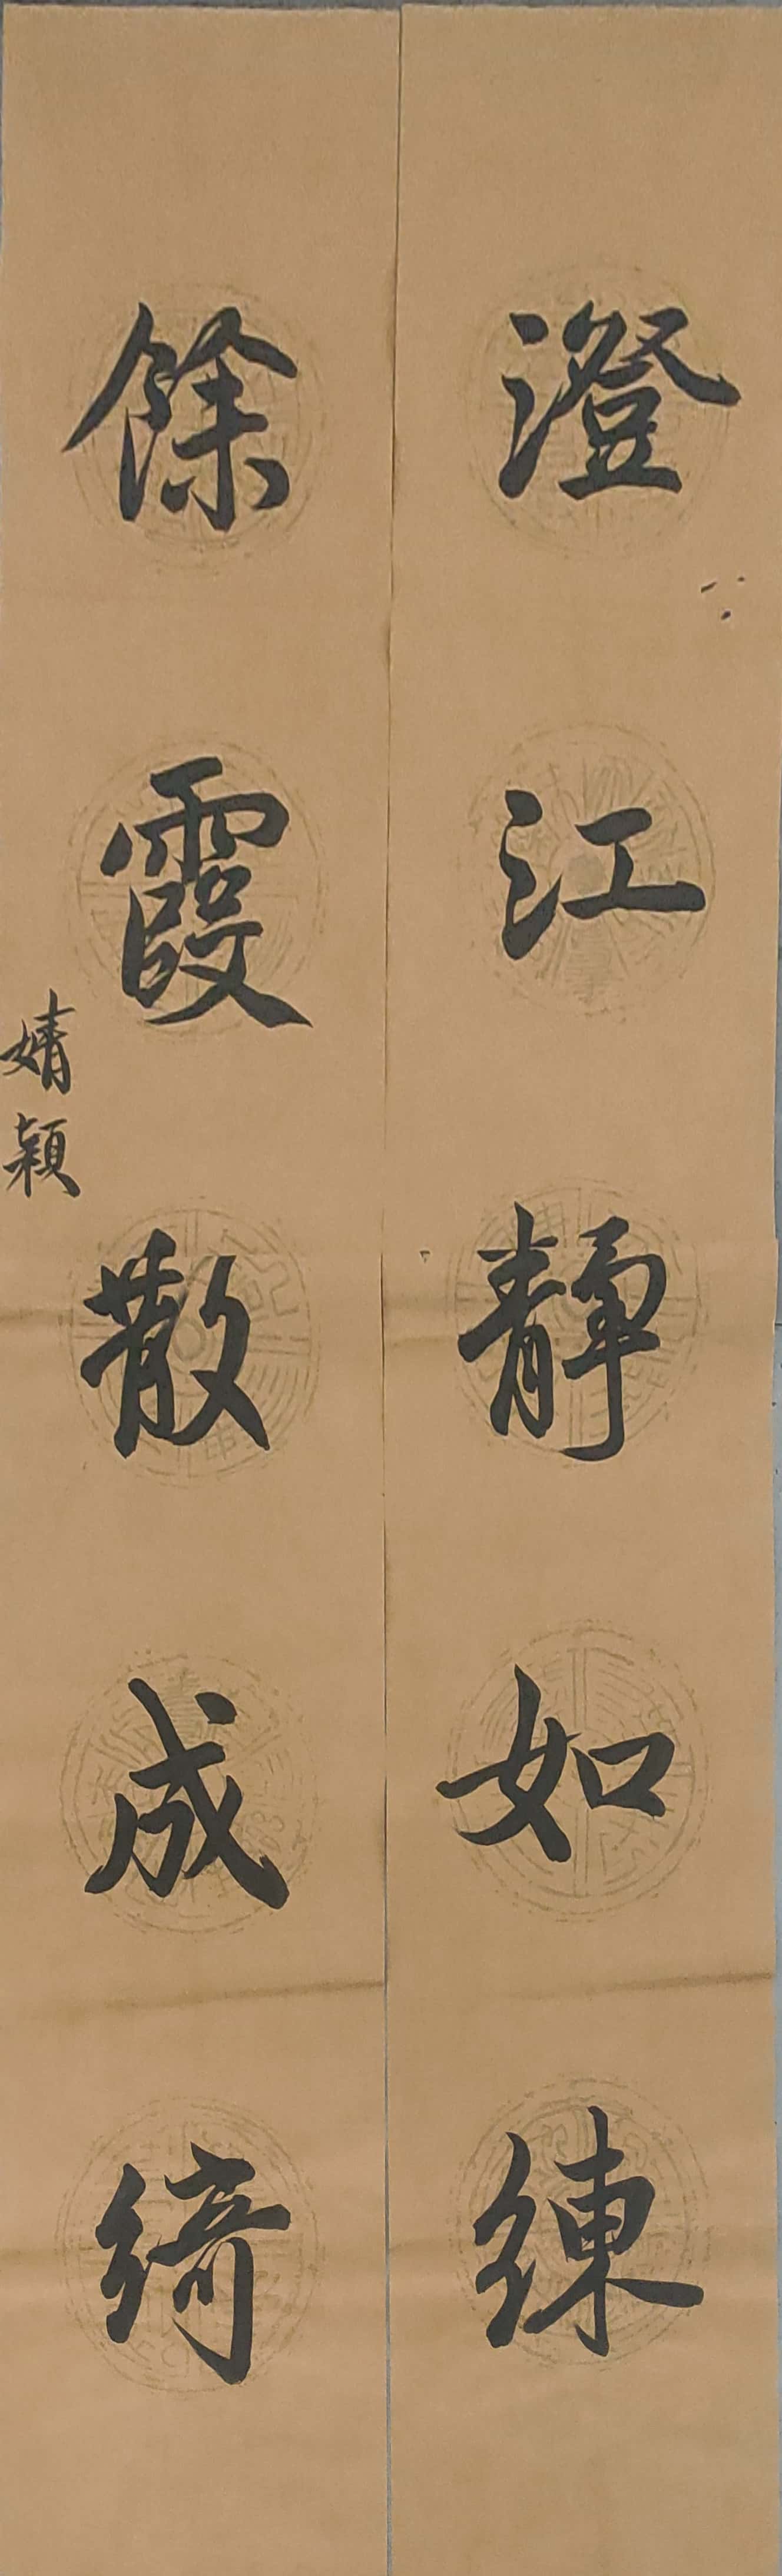 澄江静如練
餘霞散成綺
婧穎